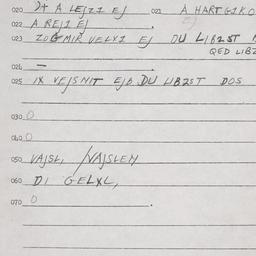 020 A LEJZI EJ 021 A HART GIKO
022 A REJZ EJ
023 ZOG MIR VELXI EJ DU LIBZST
QED LIBZ
024 —
025 IX VEJSNIT EJB DU LIBZST DOS
030 0
040 0
050 VAJSL, /VAJSLEH
060 DI GELXL,
070 0